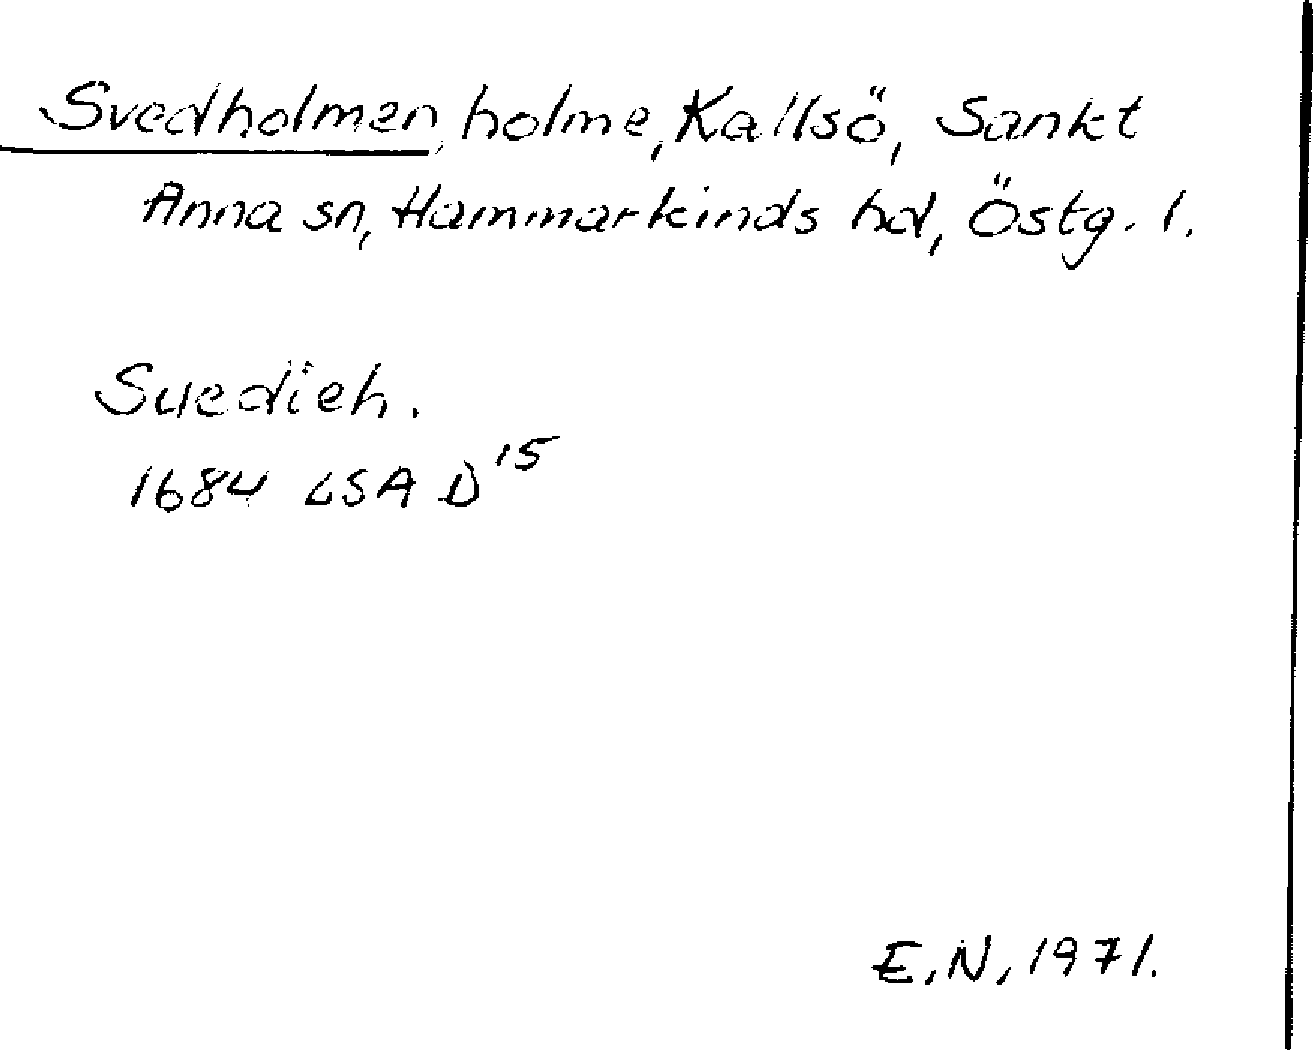 Svedholmen, holme, Kallsö, Sankt
Anna sn, Hammarkinds hd, Östg. l.
Suedieh.
1684 LSA D¹⁵
E.N, 1971.